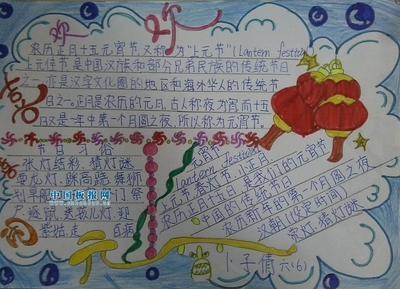 农历正月十五元宵节又称为"上元节"(Lantern festiv
上元佳节是中国汉族和部分兄弟民族的传统节日
之一亦是汉字文化圈的地区和海外华人的传统节
日之一。正月是农历的元月,古人称夜为宵而十五
日又是一年中第一个月圆之夜,所以称为元宵节。
节日习俗
张灯结彩 猜灯谜
耍龙灯 踩高跷 舞狮
划旱船 祭门 祭
户 逐鼠 送孩儿灯 迎
紫姑 走百病
元宵节
Lantern festival
元宵 春灯节 小正月
农历正月十五是我们的元宵节
中国的传统节日
农历新年的第一个月圆之夜
汉朝(设定时间)
赏灯、猜灯谜
卜子倩 六(6)
中国板报网